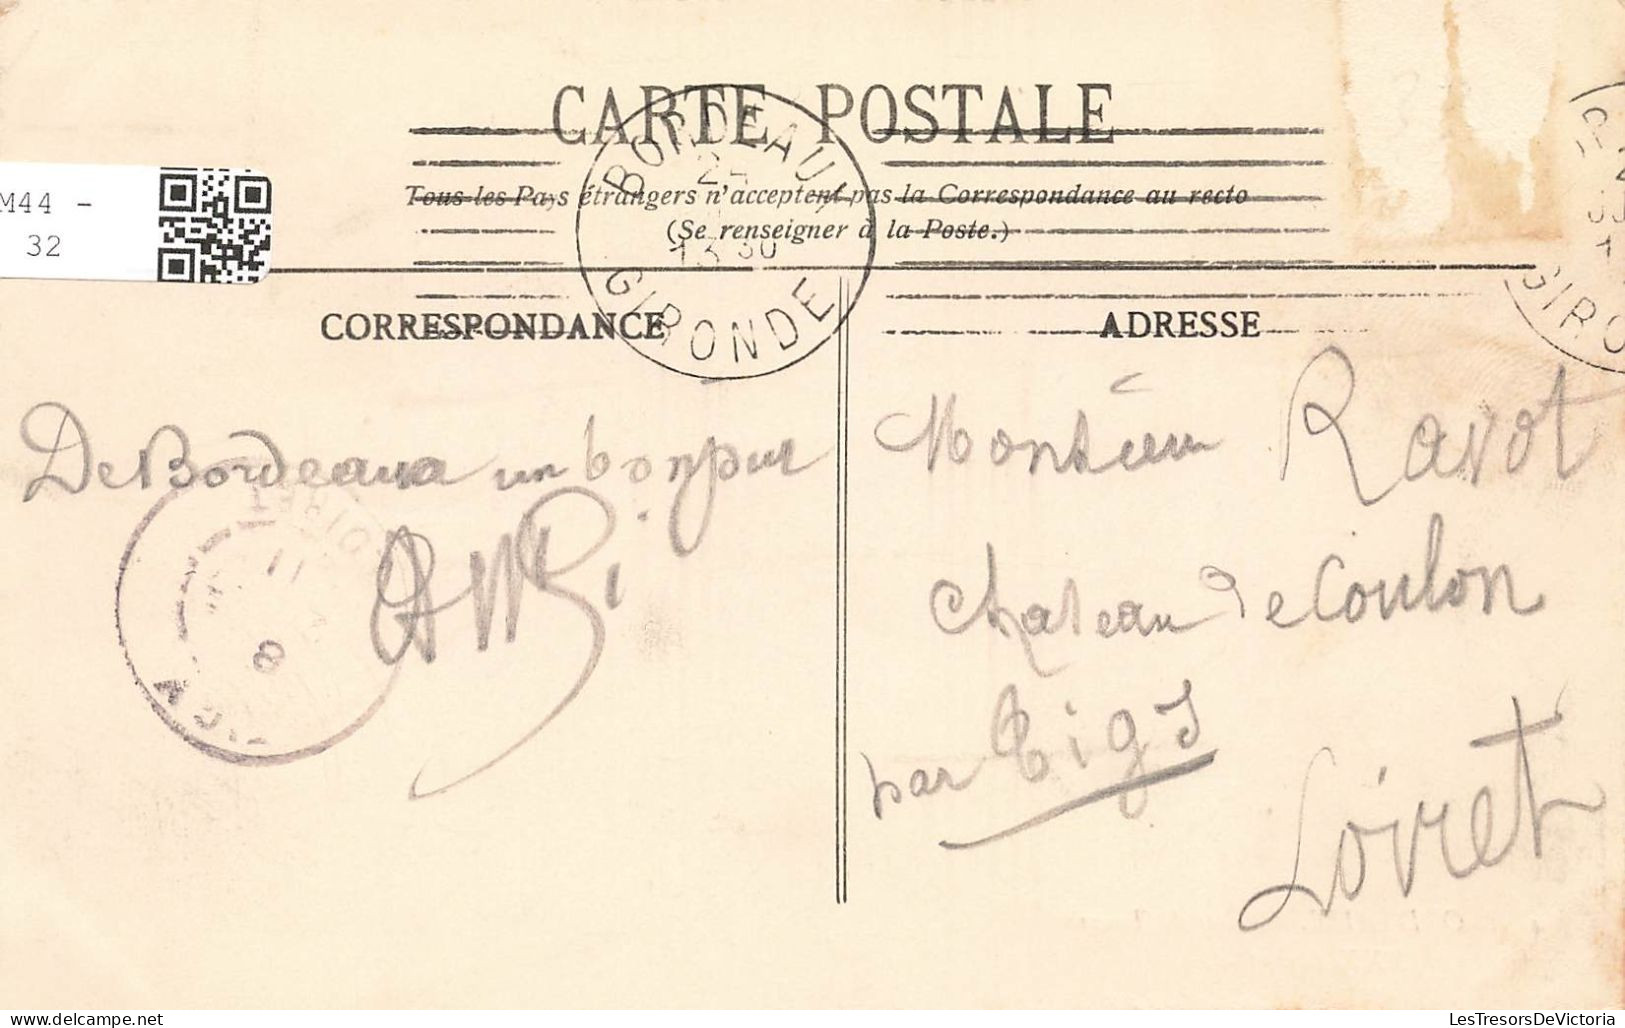 CARTE POSTALE
Tous les Pays étrangers n'acceptent pas la Correspondance au recto
(Se renseigner à la Poste.)
M44 -
32
BORDEAUX
24
13 30
GIRONDE
GIRO
CORRESPONDANCE
ADRESSE
De Bordeaux un bonjour
LOIRET
11
8
Monsieur Ravot
chateau de Coulon
par Gigy
Loiret
LesTresorsDeVictoria